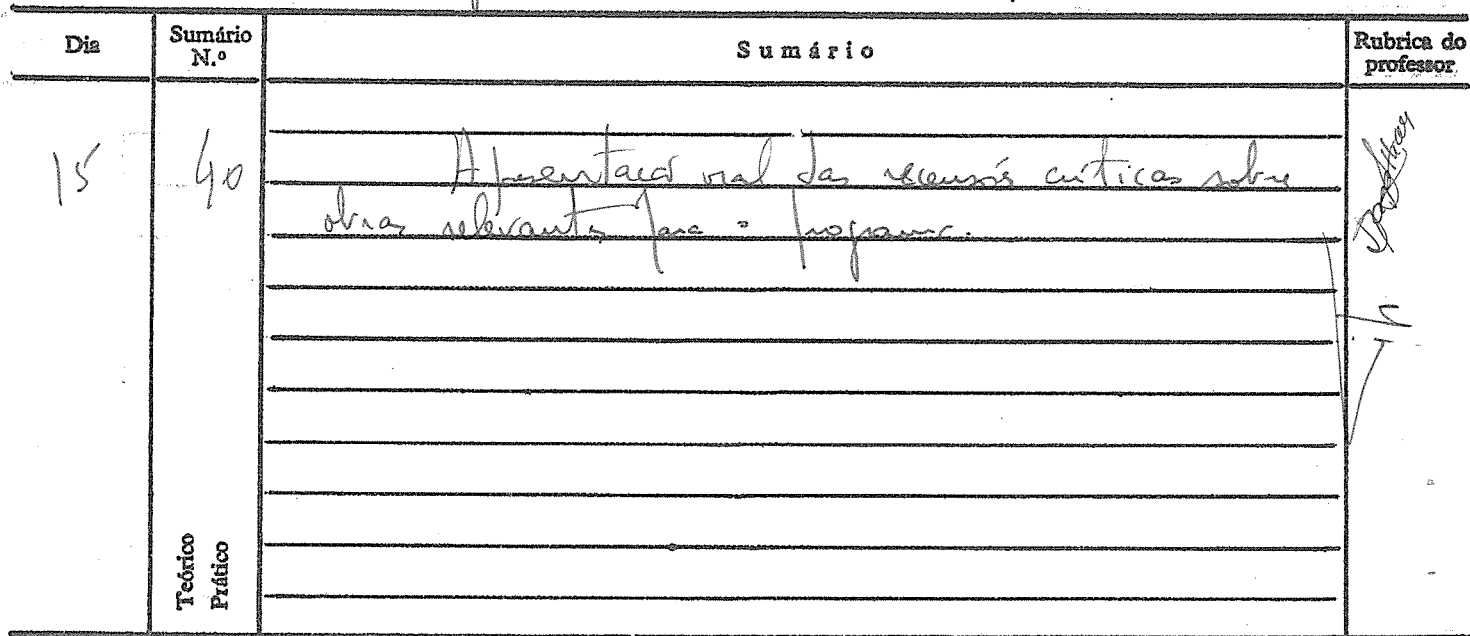 Dia Sumário N.º Sumário Rubrica do professor
15 40 Apresentação oral das recensões críticas sobre
obras relevantes para o programa.
Teórico
Prático